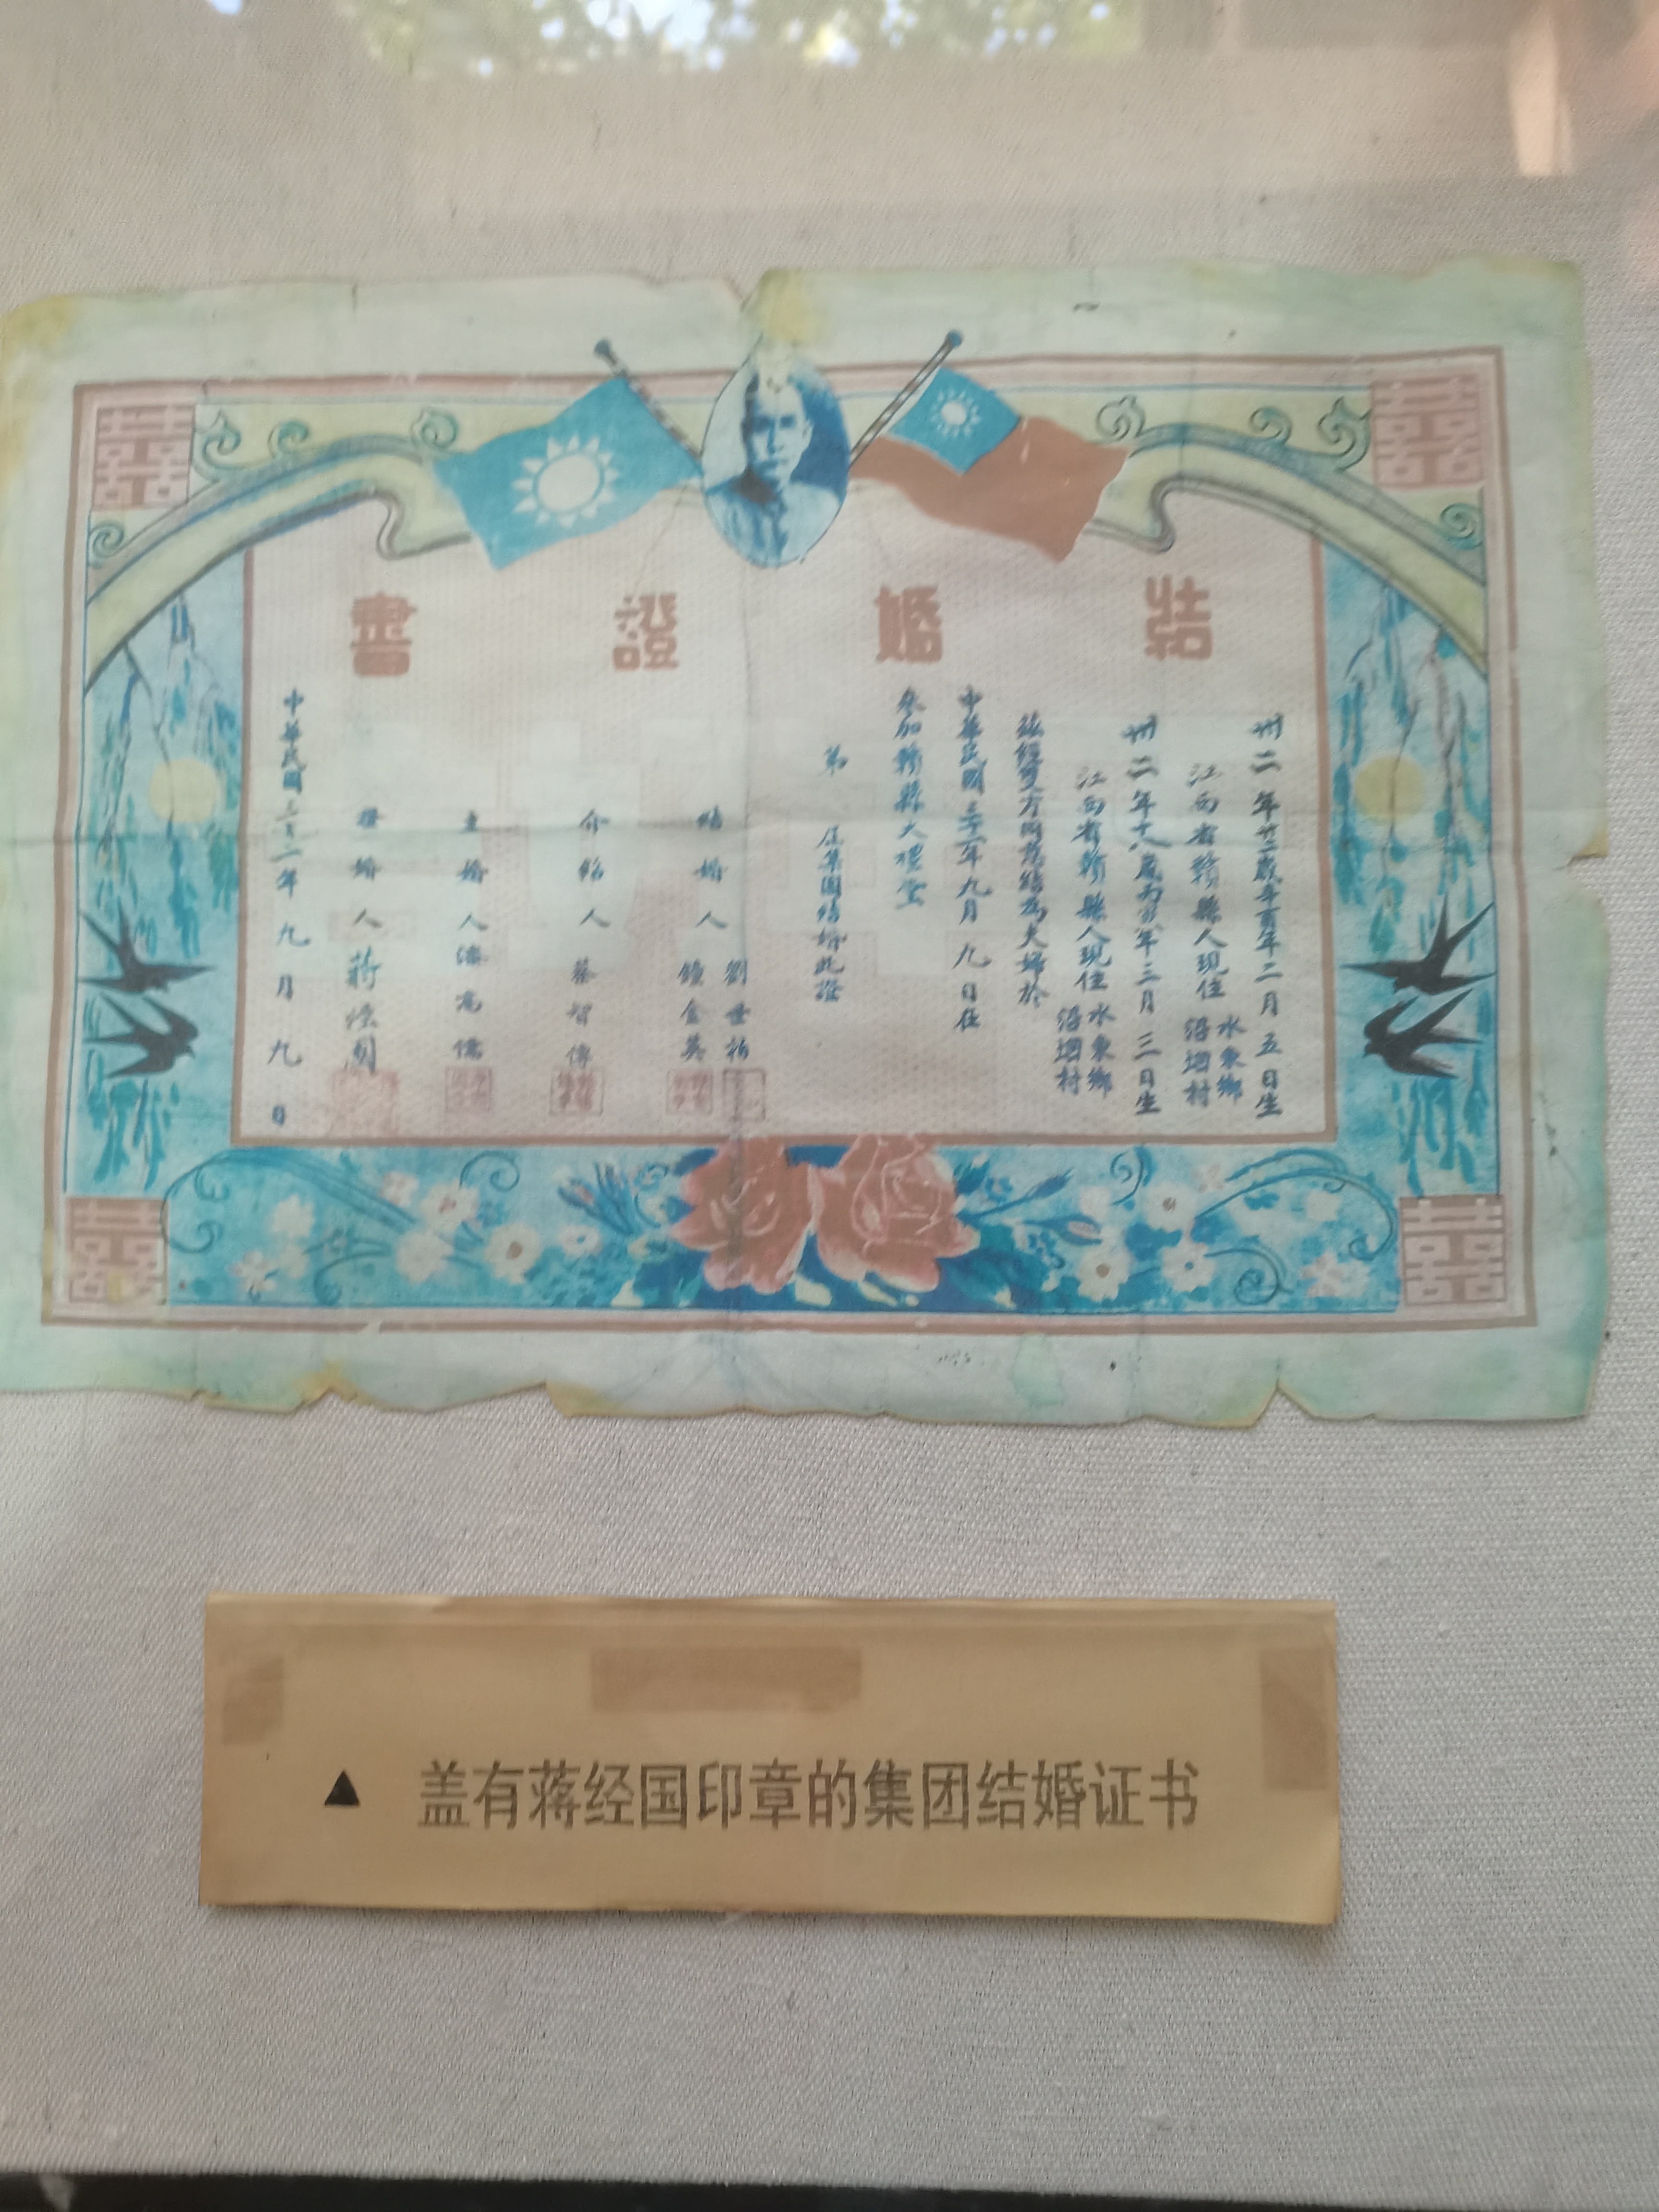 結婚證書
卅二年廿二歲辛酉年二月五日生
江西省贛縣人現住水東鄉沿垇村
卅二年十八歲丙寅年三月三日生
江西省贛縣人現住水東鄉沿垇村
茲經雙方同意結為夫婦於
中華民國三十二年九月九日在
參加贛縣大禮堂
第 屆集團結婚此證
結婚人 劉世柏
鍾金英
介紹人 蔡智傳
主婚人
證婚人 蔣經國
中華民國三十二年九月九日
▲ 盖有蒋经国印章的集团结婚证书